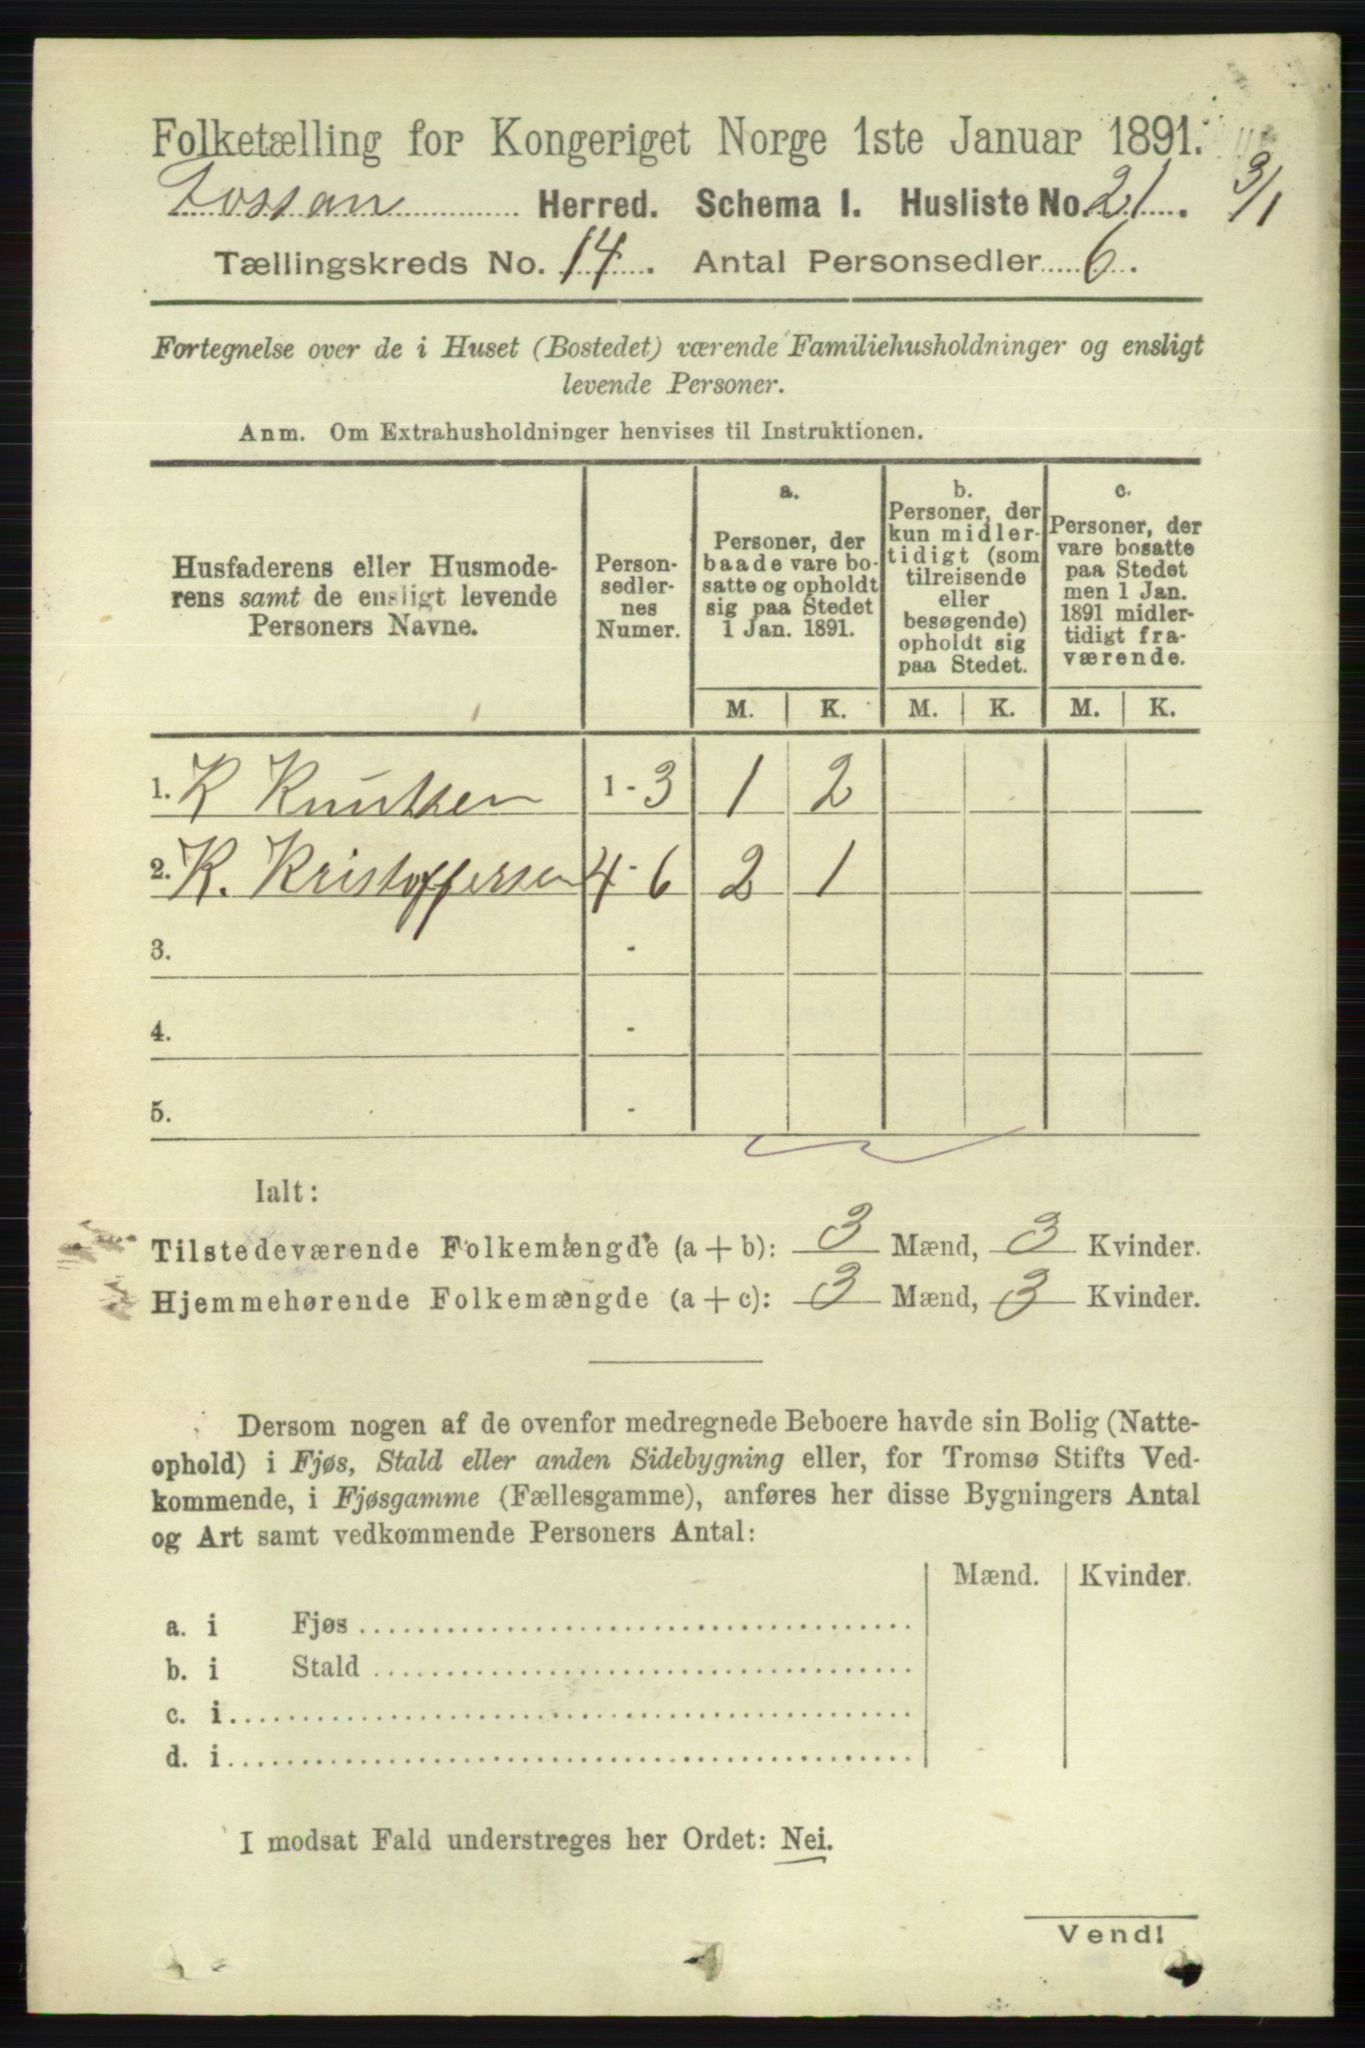 Folketælling for Kongeriget Norge 1ste Januar 1891.
Fossan Herred. Schema I. Husliste No. 21. 3/1
Tællingskreds No. 14. Antal Personsedler 6.
Fortegnelse over de i Huset (Bostedet) værende Familiehusholdninger og ensligt
levende Personer.
Anm. Om Extrahusholdninger henvises til Instruktionen.
Husfaderens eller Husmode-
rens samt de ensligt levende
Personers Navne.
Person-
sedler-
nes
Numer.
a.
Personer, der
baade vare bo-
satte og opholdt
sig paa Stedet
1 Jan. 1891.
b.
Personer, der
kun midler-
tidigt (som
tilreisende
eller
besøgende)
opholdt sig
paa Stedet.
c.
Personer, der
vare bosatte
paa Stedet
men 1 Jan.
1891 midler-
tidigt fra-
værende.
M. K. M. K. M. K.
1. K Knutsen 1 - 3 1 2
2. K. Kristoffersen 4 - 6 2 1
3. -
4. -
5. -
Ialt:
Tilstedeværende Folkemængde (a + b): 3 Mænd, 3 Kvinder.
Hjemmehørende Folkemængde (a + c): 3 Mænd, 3 Kvinder.
Dersom nogen af de ovenfor medregnede Beboere havde sin Bolig (Natte-
ophold) i Fjøs, Stald eller anden Sidebygning eller, for Tromsø Stifts Ved-
kommende, i Fjøsgamme (Fællesgamme), anføres her disse Bygningers Antal
og Art samt vedkommende Personers Antal:
Mænd. Kvinder.
a. i Fjøs
b. i Stald
c. i
d. i
I modsat Fald understreges her Ordet: Nei.
Vend!